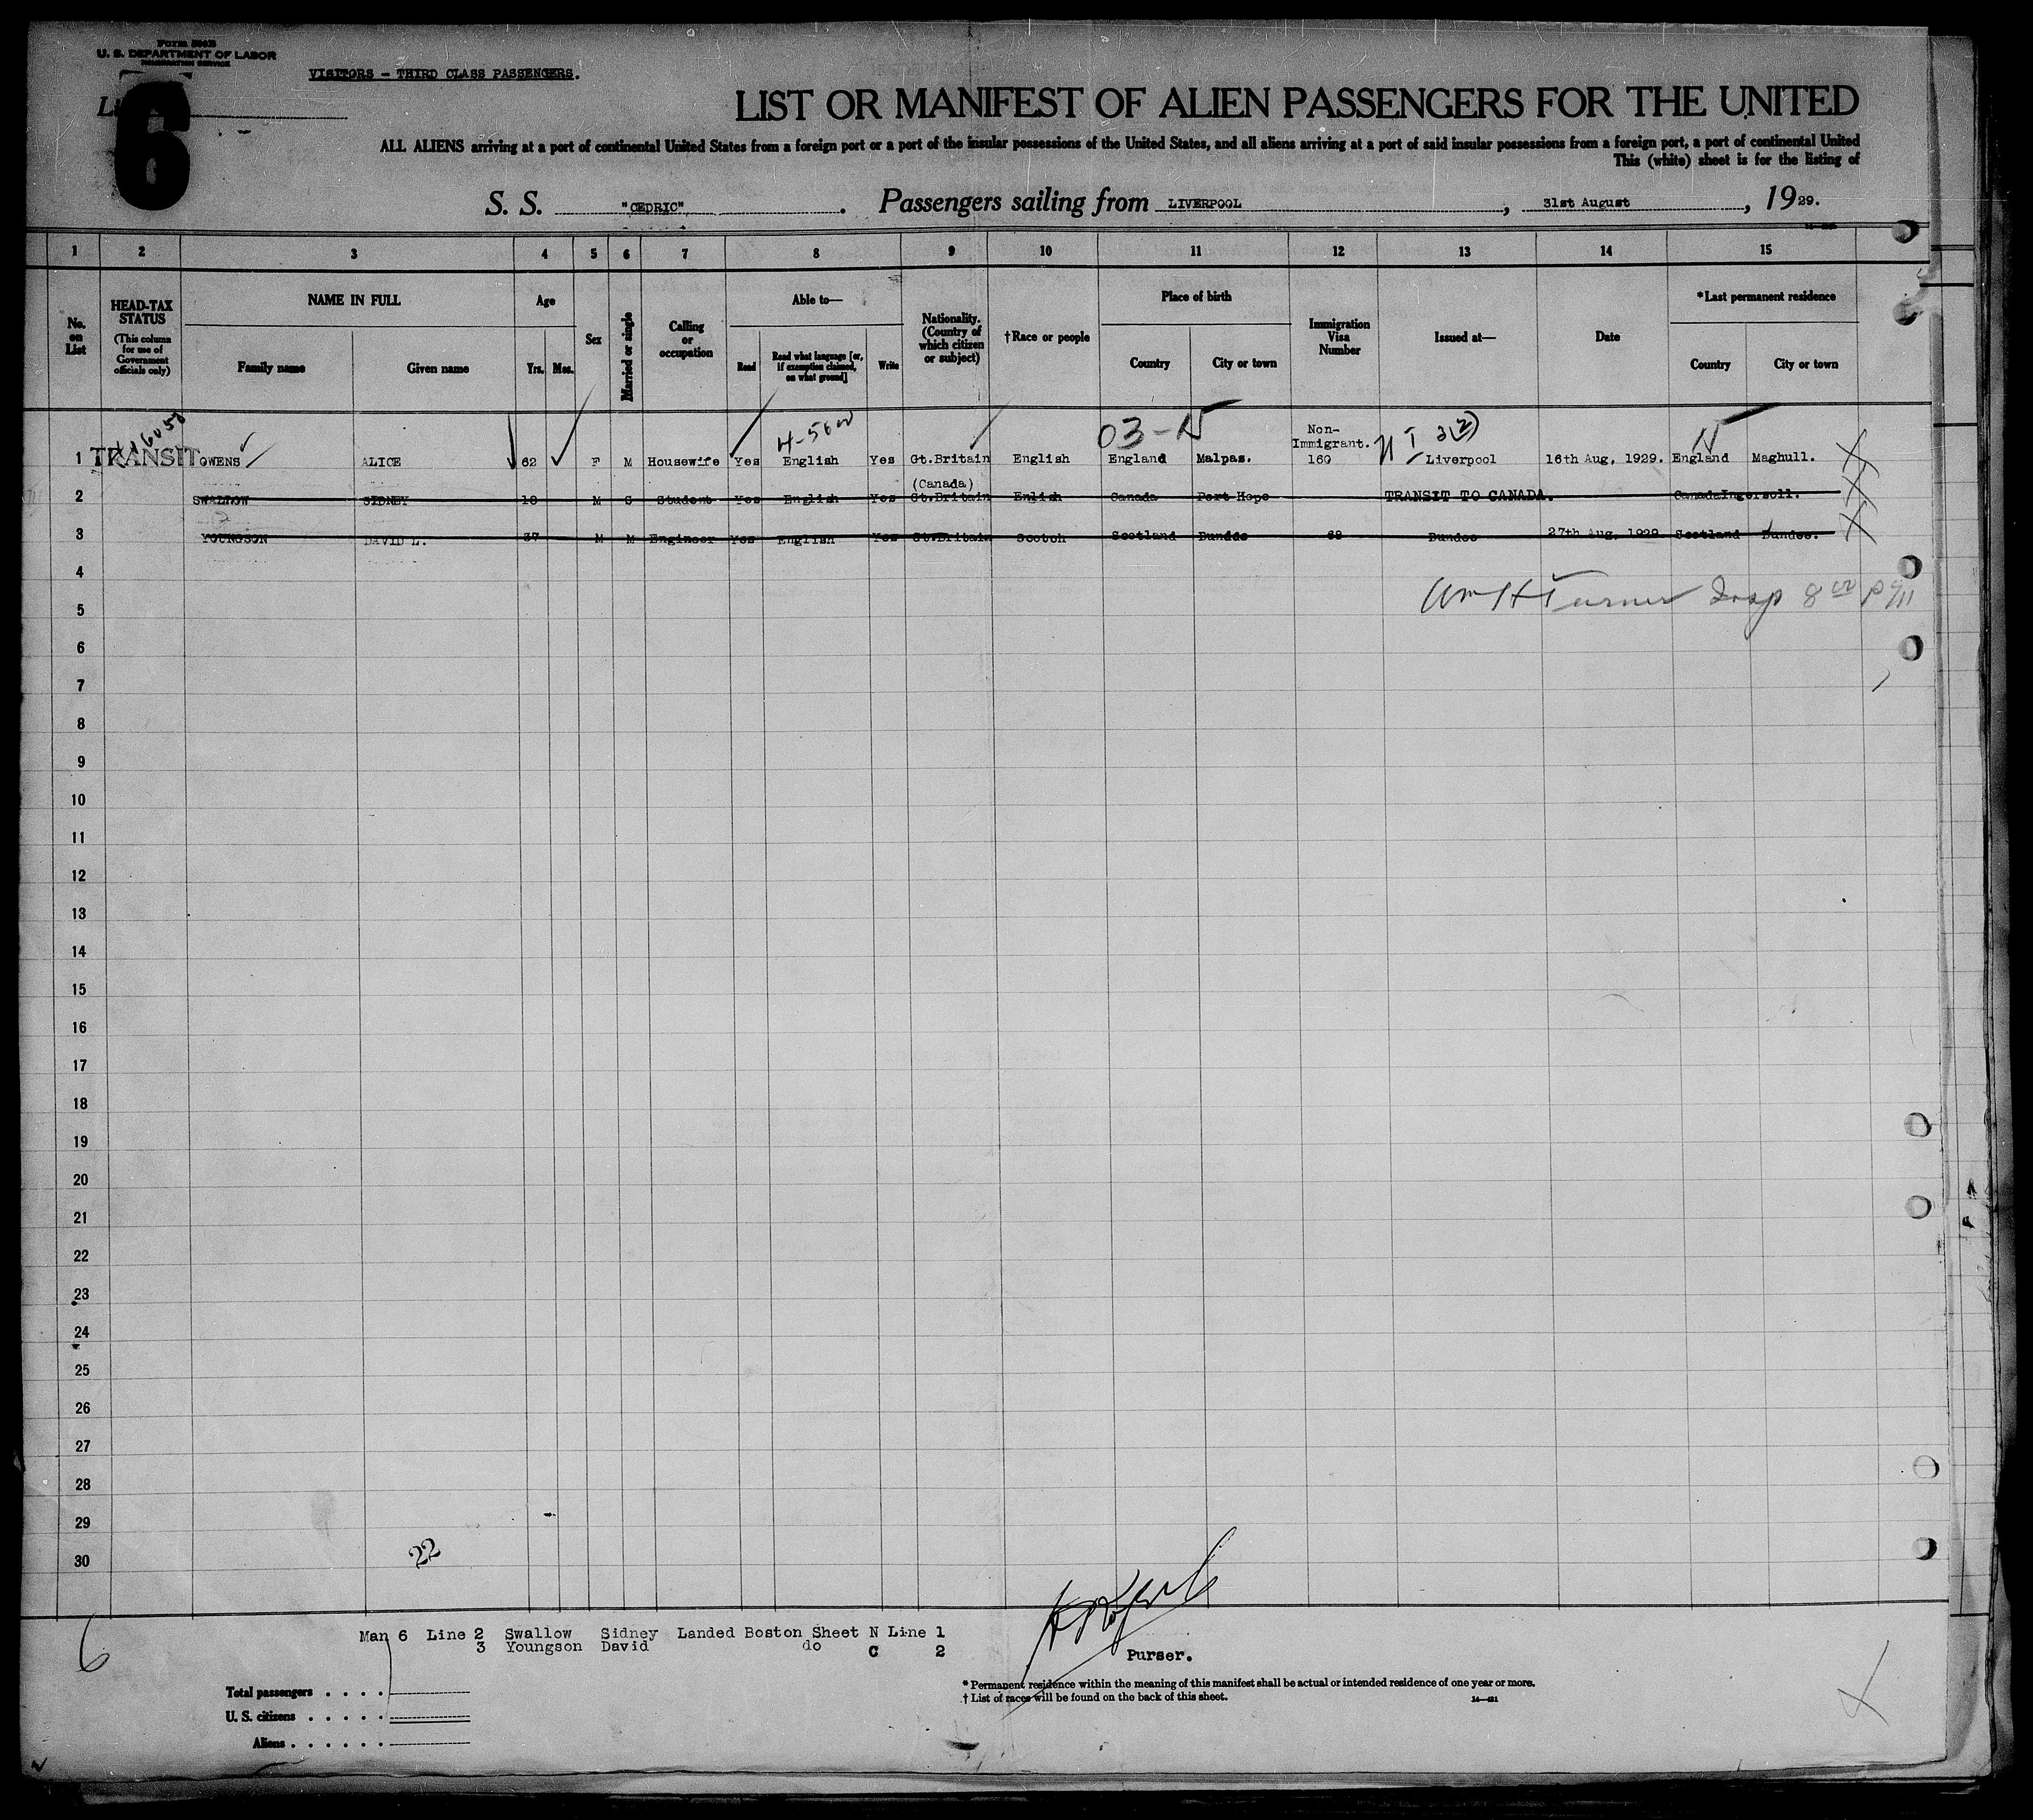 Form 500B
U. S. DEPARTMENT OF LABOR
IMMIGRATION SERVICE
VISITORS - THIRD CLASS PASSENGERS.
6
LIST OR MANIFEST OF ALIEN PASSENGERS FOR THE UNITED
ALL ALIENS arriving at a port of continental United States from a foreign port or a port of the insular possessions of the United States, and all aliens arriving at a port of said insular possessions from a foreign port, a port of continental United
This (white) sheet is for the listing of
S. S. "CEDRIC". Passengers sailing from LIVERPOOL, 31st August, 1929.
1 2 3 4 5 6 7 8 9 10 11 12 13 14 15
No. on List
HEAD-TAX STATUS (This column for use of Government officials only)
NAME IN FULL Family name Given name
Age Yrs. Mos.
Sex
Married or single
Calling or occupation
Able to— Read Read what language [or, if exemption claimed, on what ground] Write
Nationality. (Country of which citizen or subject)
†Race or people
Place of birth Country City or town
Immigration Visa Number
Issued at—
Date
*Last permanent residence Country City or town
03-N 3(2) N
Non-Immigrant.
1 TRANSIT OWENS ALICE 62 F M Housewife Yes English Yes Gt.Britain English England Malpas. 160 Liverpool 16th Aug, 1929. England Maghull.
(Canada)
2 SWALLOW SIDNEY 18 M S Student Yes English Yes Gt.Britain Enlish Canada Port Hope TRANSIT TO CANADA. Canada Ingersoll.
3 YOUNGSON DAVID L. 37 M M Engineer Yes English Yes Gt.Britain Scotch Scotland Dundee 68 Dundee 27th Aug, 1929 Scotland Dundee.
4
Wm H Turner Insp 8 00 P 9/11
5
6
7
8
9
10
11
12
13
14
15
16
17
18
19
20
21
22
23
24
25
26
27
28
29
30
22
6
Man 6 Line 2 Swallow Sidney Landed Boston Sheet N Line 1
3 Youngson David do C 2
Purser.
Total passengers . . . .
U. S. citizens . . . . .
Aliens . . . . . .
* Permanent residence within the meaning of this manifest shall be actual or intended residence of one year or more.
† List of races will be found on the back of this sheet.
14—421